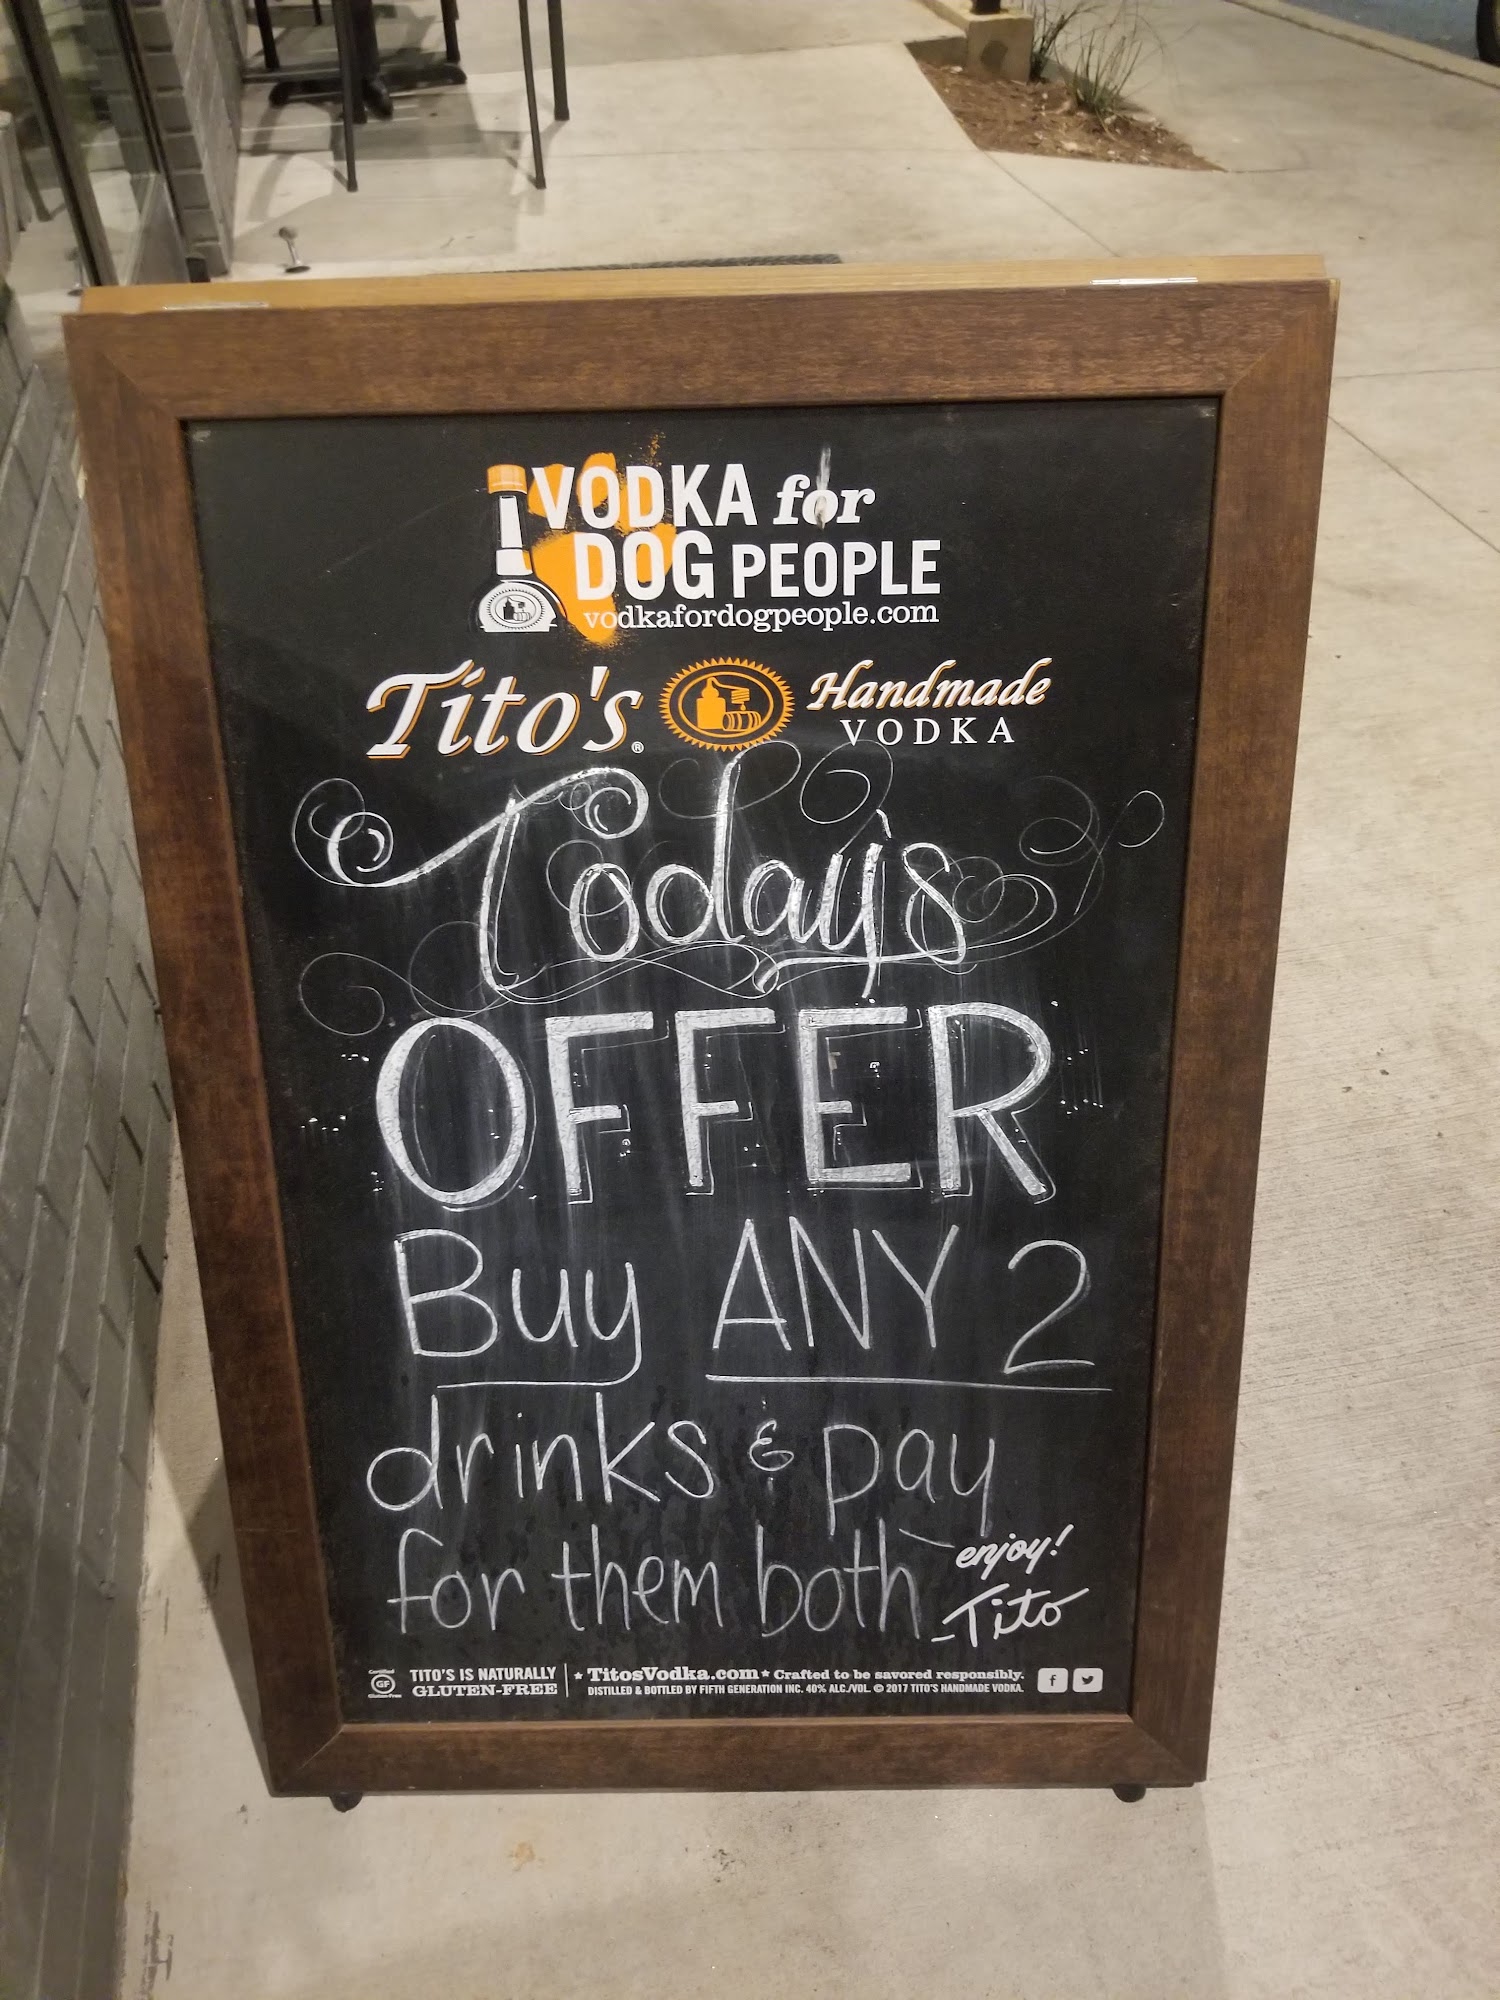 VODKA for
DOG PEOPLE
vodkafordogpeople.com
Tito's® Handmade
VODKA
Today's
OFFER
Buy ANY 2
drinks & pay
for them both
enjoy!
-Tito
Certified
GF
Gluten-Free
TITO'S IS NATURALLY
GLUTEN-FREE
★ TitosVodka.com ★ Crafted to be savored responsibly.
DISTILLED & BOTTLED BY FIFTH GENERATION INC. 40% ALC./VOL. © 2017 TITO'S HANDMADE VODKA.